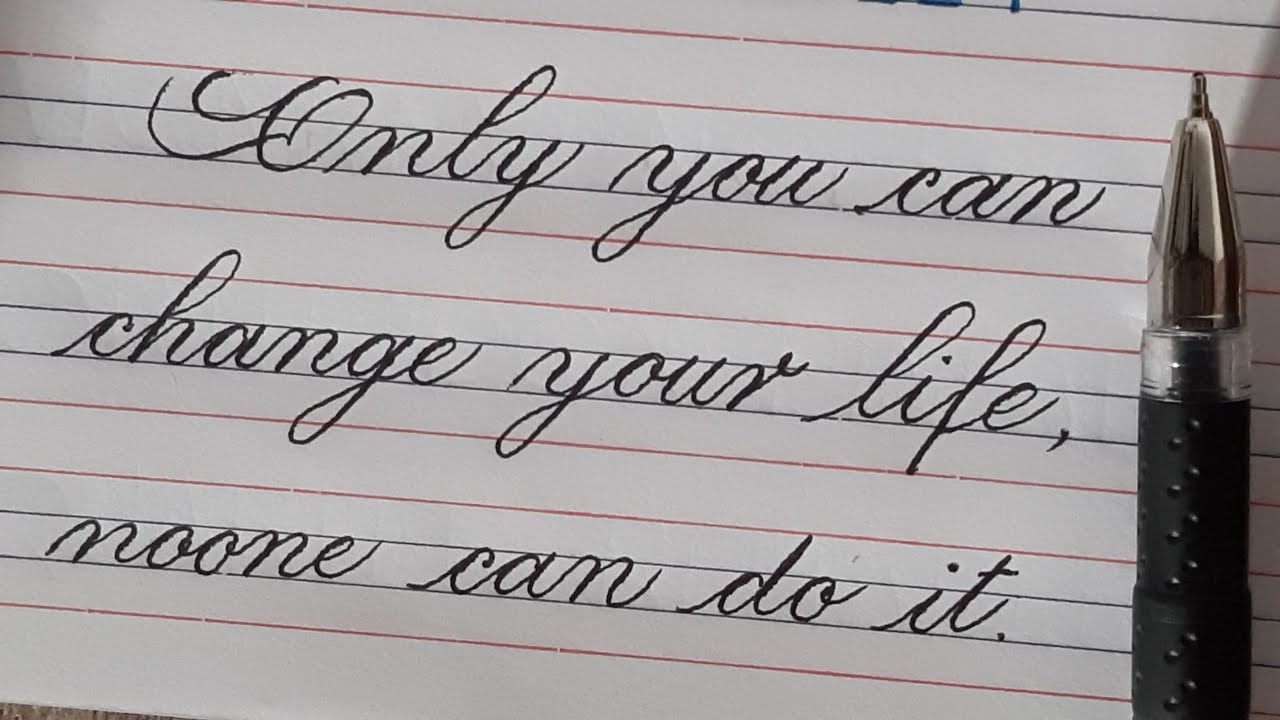 Only you can
change your life,
noone can do it.